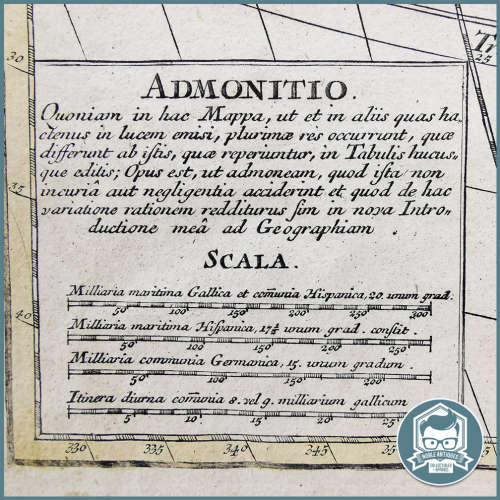 30
Tr
25
ADMONITIO.
Quoniam in hac Mappa, ut et in aliis quas ha-
ctenus in lucem emisi, plurimæ res occurrunt, quæ
differunt ab istis, quæ reperiuntur, in Tabulis hucus-
que editis; Opus est, ut admoneam, quod ista non
incuriâ aut negligentia acciderint et quod de hac
variatione rationem redditurus sim in nova Intro-
ductione meâ ad Geographiam.
35
SCALA.
Milliaria maritima Gallica et com̃unia Hispanica, 20. unum grad.
50 100 150 200 250 300
40
Milliaria maritima Hispanica, 17½ unum grad. constit.
50 100 150 200 250
Milliaria communia Germanica, 15. unum gradum.
50 100 150 200
Itinera diurna com̃unia 8. vel 9. milliarium gallicum
5 10 15 20 25
330 335 340 345 350 355
NOBLE ANTIQUES